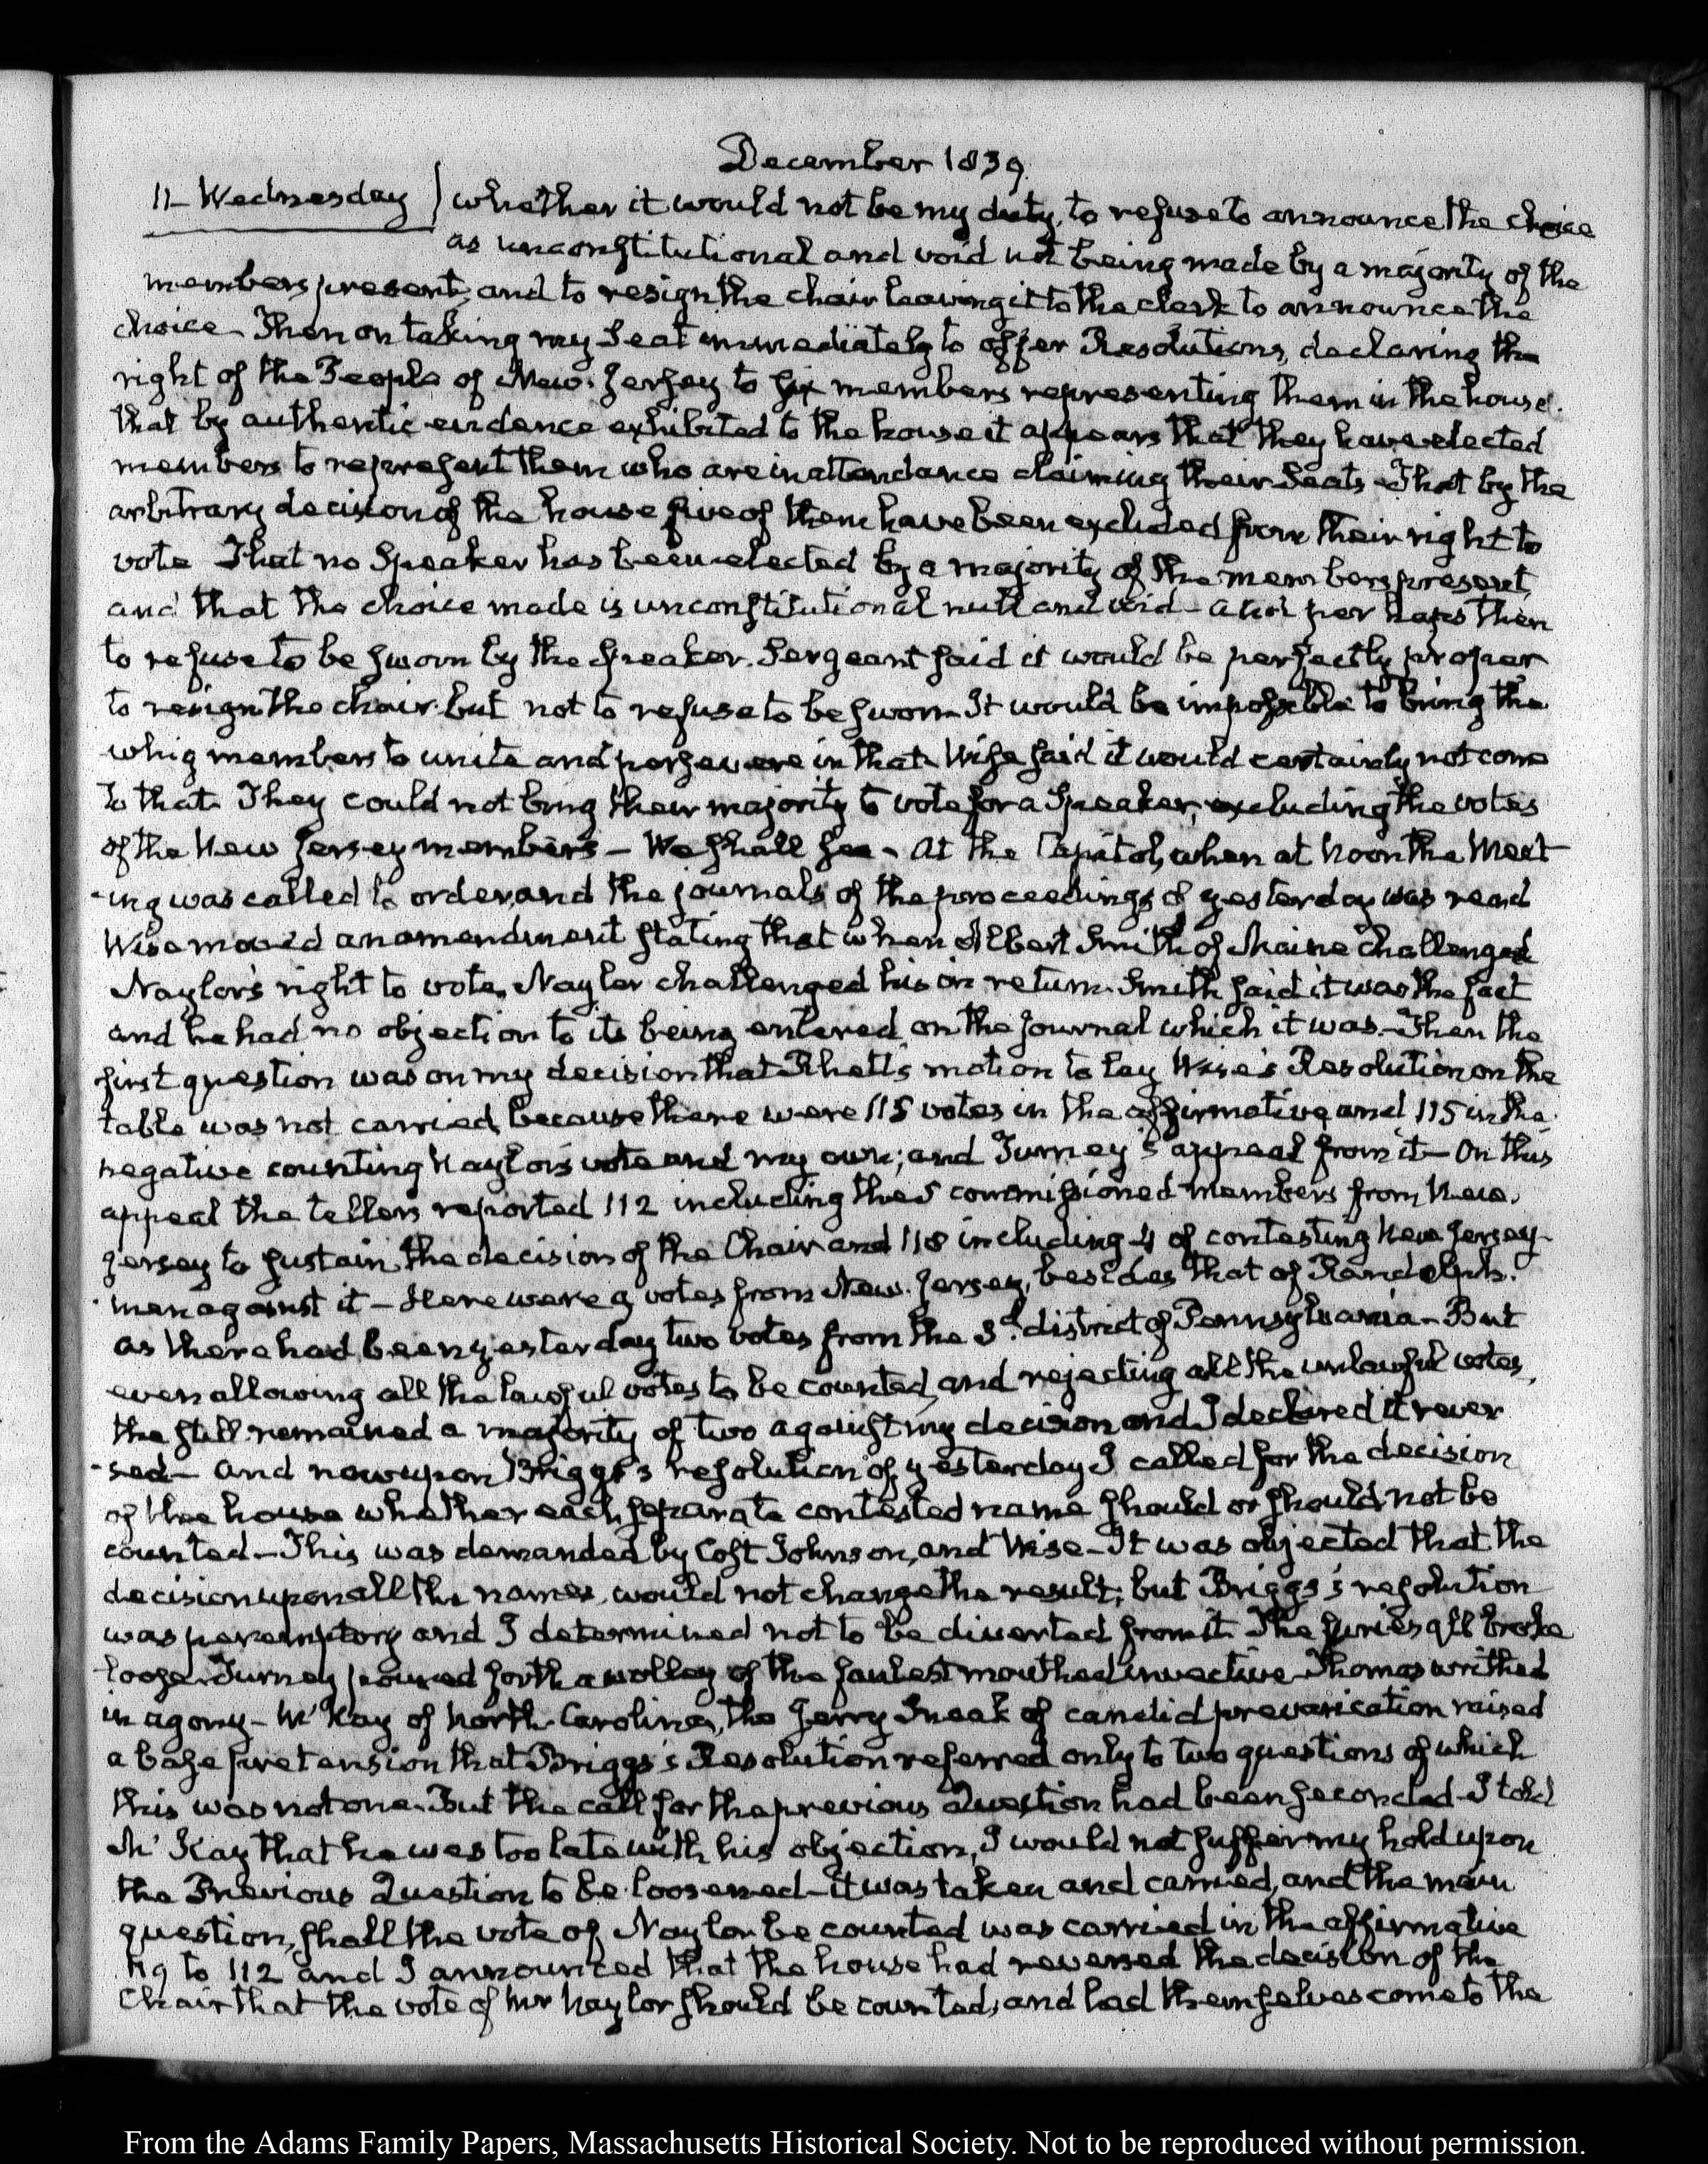 December 1839.
11– Wednesday } whether it would not be my duty, to refuse to announce the choice
as unconstitutional and void not being made by a majority of the
members present, and to resign the chair leaving it to the clerk to announce the
choice – Then on taking my Seat immediately to offer Resolutions, declaring the
right of the People of New-Jersey to six members representing them in the house.
that by authentic evidence exhibited to the house it appears that they have elected
members to represent them who are in attendance claiming their Seats – That by the
arbitrary decision of the house five of them have been excluded from their right to
vote That no Speaker has been elected by a majority of the members present,
and that the choice made is unconstitutional null and void – and perhaps then
to refuse to be sworn by the Speaker. Sergeant said it would be perfectly proper
to resign the chair but not to refuse to be sworn It would be impossible to bring the
whig members to unite and persevere in that. Wise said it would certainly not come
to that. They could not bring their majority to vote for a Speaker, excluding the votes
of the New Jersey members – We shall see – At the Capitol, when at Noon the Meet
-ing was called to order, and the journals of the proceedings of yesterday was read
Wise moved an amendment stating that when Albert Smith of Maine challenged
Naylor's right to vote, Naylor challenged his in return. Smith said it was the fact
and he had no objection to its being entered on the Journal which it was – Then the
first question was on my decision that Rhett's motion to lay Wise's Resolution on the
table was not carried, because there were 115 votes in the affirmative and 115 in the
negative counting Naylor's vote and my own; and Turney's appeal from it – On this
appeal the tellers reported 112 including the 5 commissioned members from New-
Jersey to sustain the decision of the Chair and 118 including 4 of contesting New Jersey-
men against it – Here were 9 votes from New-Jersey, besides that of Randolph.
as there had been yesterday two votes from the 3.d district of Pennsylvania – But
even allowing all the lawful votes to be counted, and rejecting all the unlawful votes,
the still remained a majority of two against my decision and I declared it rever
-sed – And now upon Briggs's resolution of yesterday I called for the decision
of the house whether each separate contested name should or should not be
counted – This was demanded by Cost Johnson, and Wise – It was objected that the
decision upon all the names, would not change the result; but Briggs's resolution
was peremptory and I determined not to be diverted from it. The furies all broke
loose. Turney poured forth a volley of the foulest mouthed invective – Thomas writhed
in agony – McKay of North-Carolina, the Jerry Sneak of candid prevarication raised
a base pretension that Briggs's Resolution referred only to two questions of which
this was not one. But the call for the previous Question had been seconded – I told
Mc Kay that he was too late with his objection, I would not suffer my hold upon
the Previous Question to be loosened – it was taken and carried, and the main
question, shall the vote of Naylor be counted was carried in the affirmative
119 to 112 and I announced that the house had reversed the decision of the
Chair that the vote of Mr Naylor should be counted, and had themselves come to the
From the Adams Family Papers, Massachusetts Historical Society. Not to be reproduced without permission.